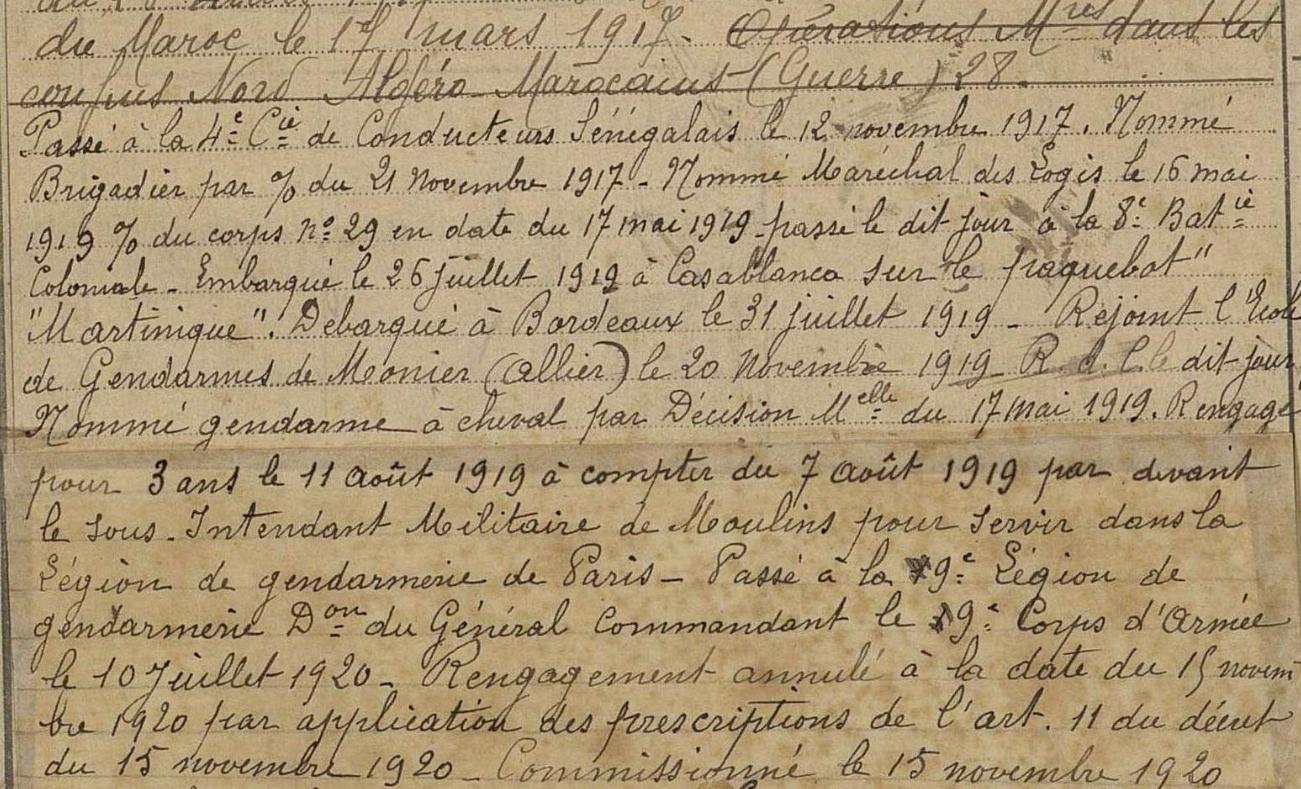 du Maroc le 17 mars 1917. Opérations Mres dans les
confins Nord Algéro-Marocains (Guerre) 28.
Passé à la 4e Cie de Conducteurs Sénégalais le 12 novembre 1917. Nommé
Brigadier par % du 21 Novembre 1917 - Nommé Maréchal des Logis le 16 mai
1919 % du corps no 29 en date du 17 mai 1919 passé le dit jour à la 8e Batie
Coloniale - Embarqué le 26 juillet 1919 à Casablanca sur le paquebot"
"Martinique". Débarqué à Bordeaux le 31 juillet 1919 - Rejoint l'Ecole
de Gendarmes de Monier (Allier) le 20 Novembre 1919 R. d. C. le dit jour
Nommé gendarme à cheval par Décision Melle du 17 mai 1919. Rengagé
pour 3 ans le 11 août 1919 à compter du 7 août 1919 par devant
le Sous-Intendant Militaire de Moulins pour servir dans la
Légion de gendarmerie de Paris - Passé à la 19e Légion de
gendarmerie Don du Général Commandant le 19e Corps d'Armée
le 10 Juillet 1920 - Rengagement annulé à la date du 15 novem
bre 1920 par application des prescriptions de l'art. 11 du décret
du 15 novembre 1920 - Commissionné le 15 novembre 1920